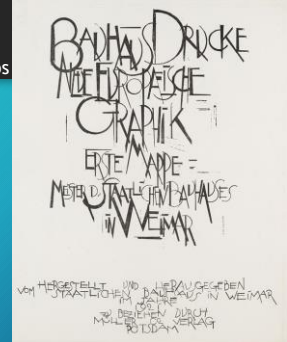 BAUHAUS DRUCKE
NEUE EUROPAEISCHE
GRAPHIK
ERSTE MAPPE =
MEISTER D. STAATLICHEN BAUHAUSES
IN WEIMAR
HERGESTELLT UND HERAUSGEGEBEN
VOM STAATLICHEN BAUHAUS IN WEIMAR
IM JAHRE
ZU BEZIEHEN DURCH
MÜLLER & CO VERLAG
POTSDAM